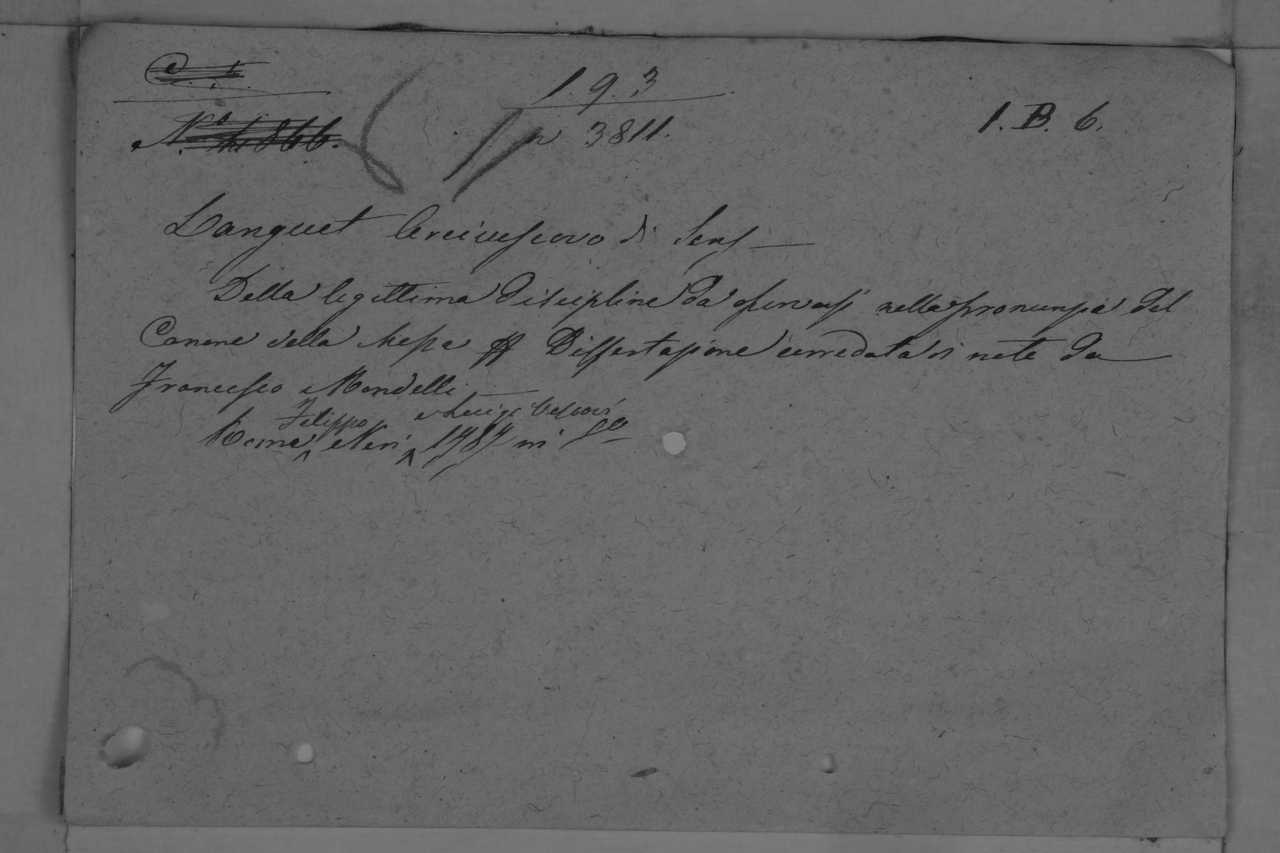 1. 9. 3
n 3811.
1. B. 6.
N.º 4866.
Languet Arcivescovo di Sens
Della legittima disciplina da osservarsi nella pronunzia del
Canone della Messa Dissertazione corredata di note da
Francesco Mondelli
Filippo e Luigi Vescovi
Roma Neri 1787 in 8º